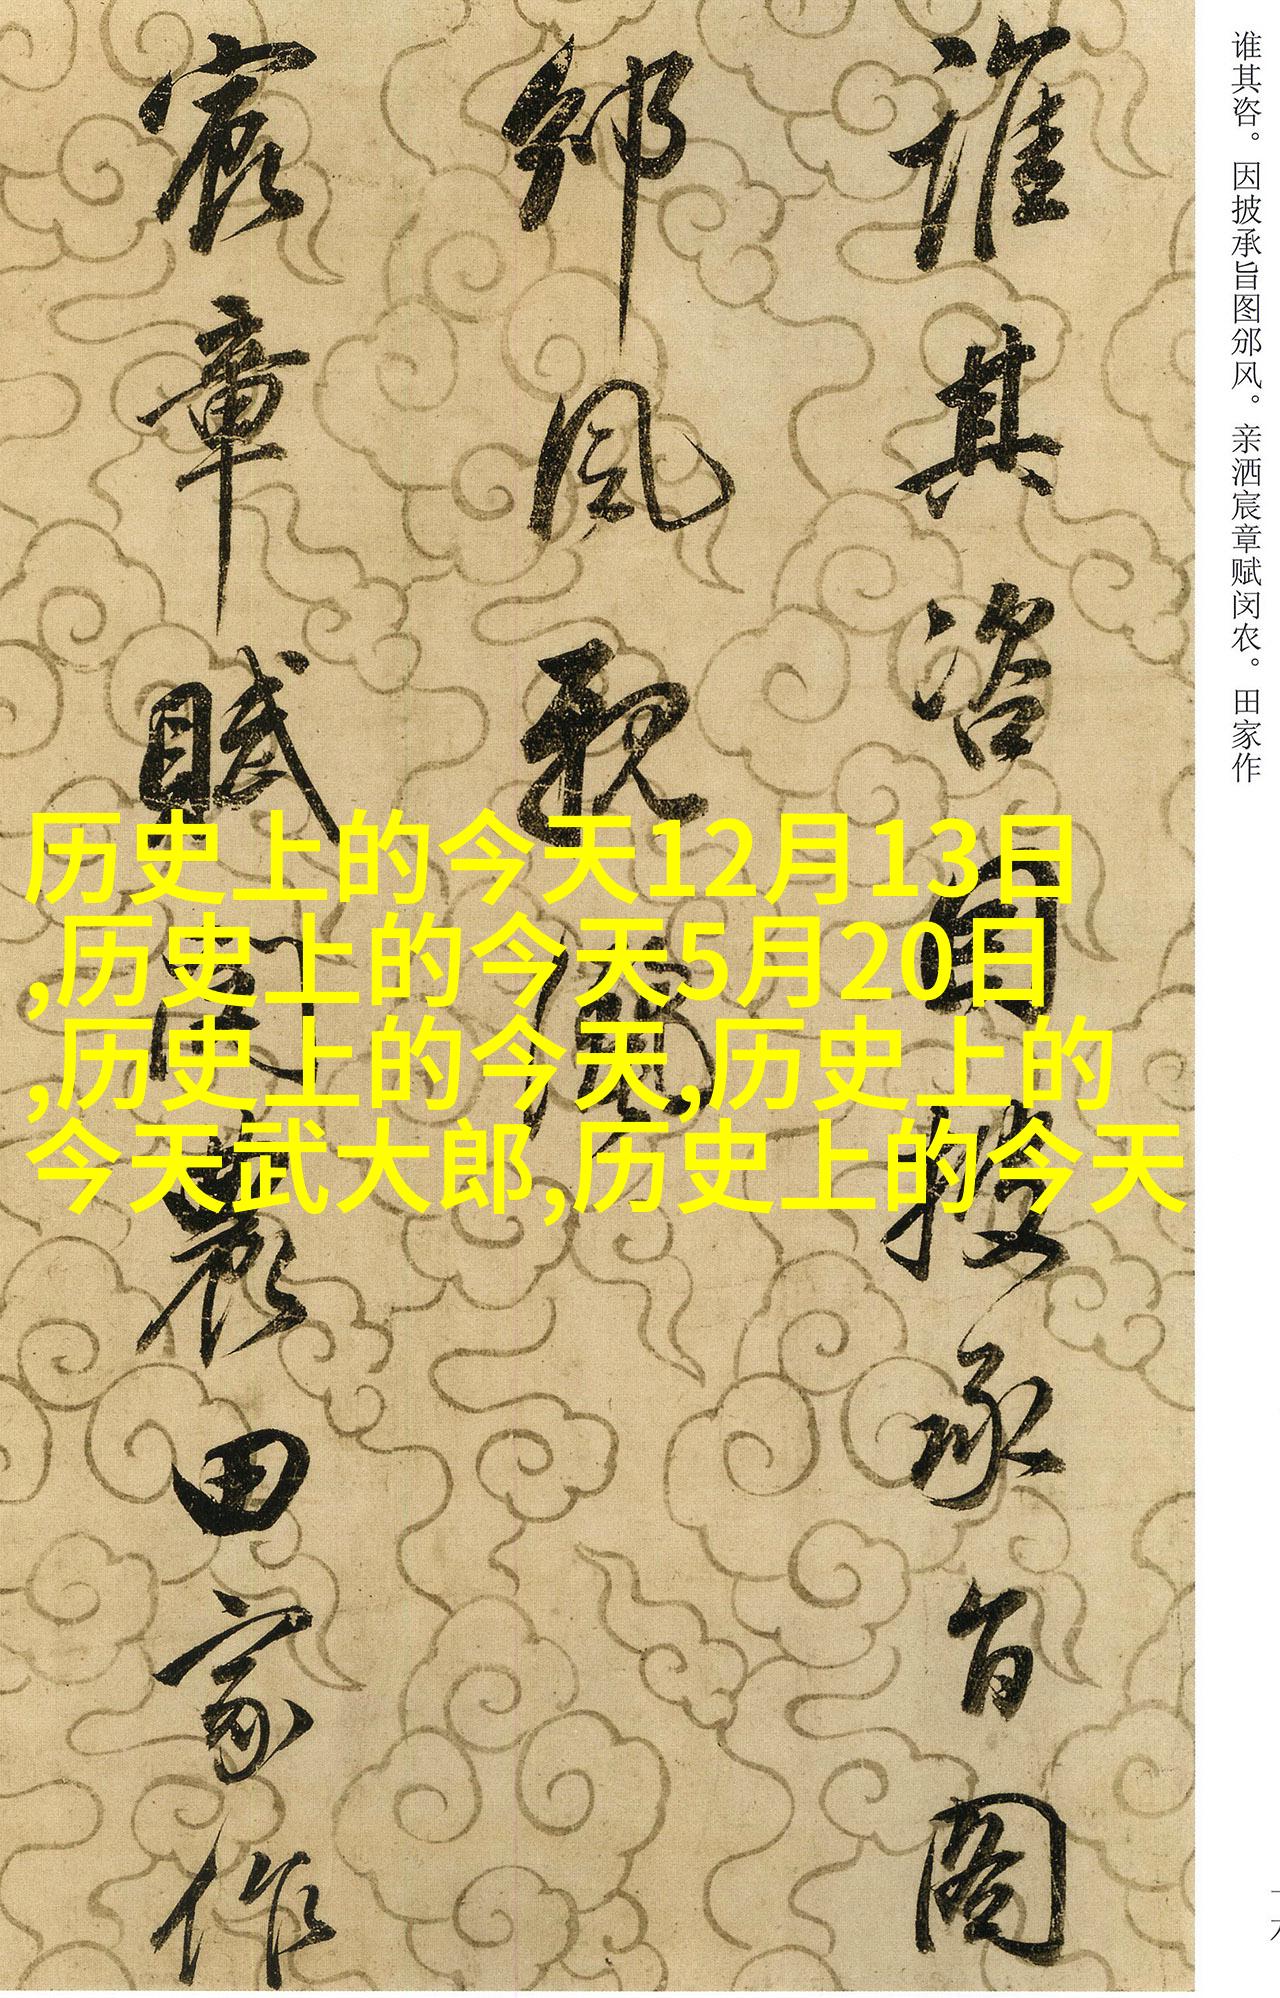 谁其咨。因披承旨图邠风。亲洒宸章赋闵农。田家作
誰其咨因披承旨圖
邠風親灑
宸章賦閔農田家作
历史上的今天12月13日
,历史上的今天5月20日
,历史上的今天,历史上的
今天武大郎,历史上的今天